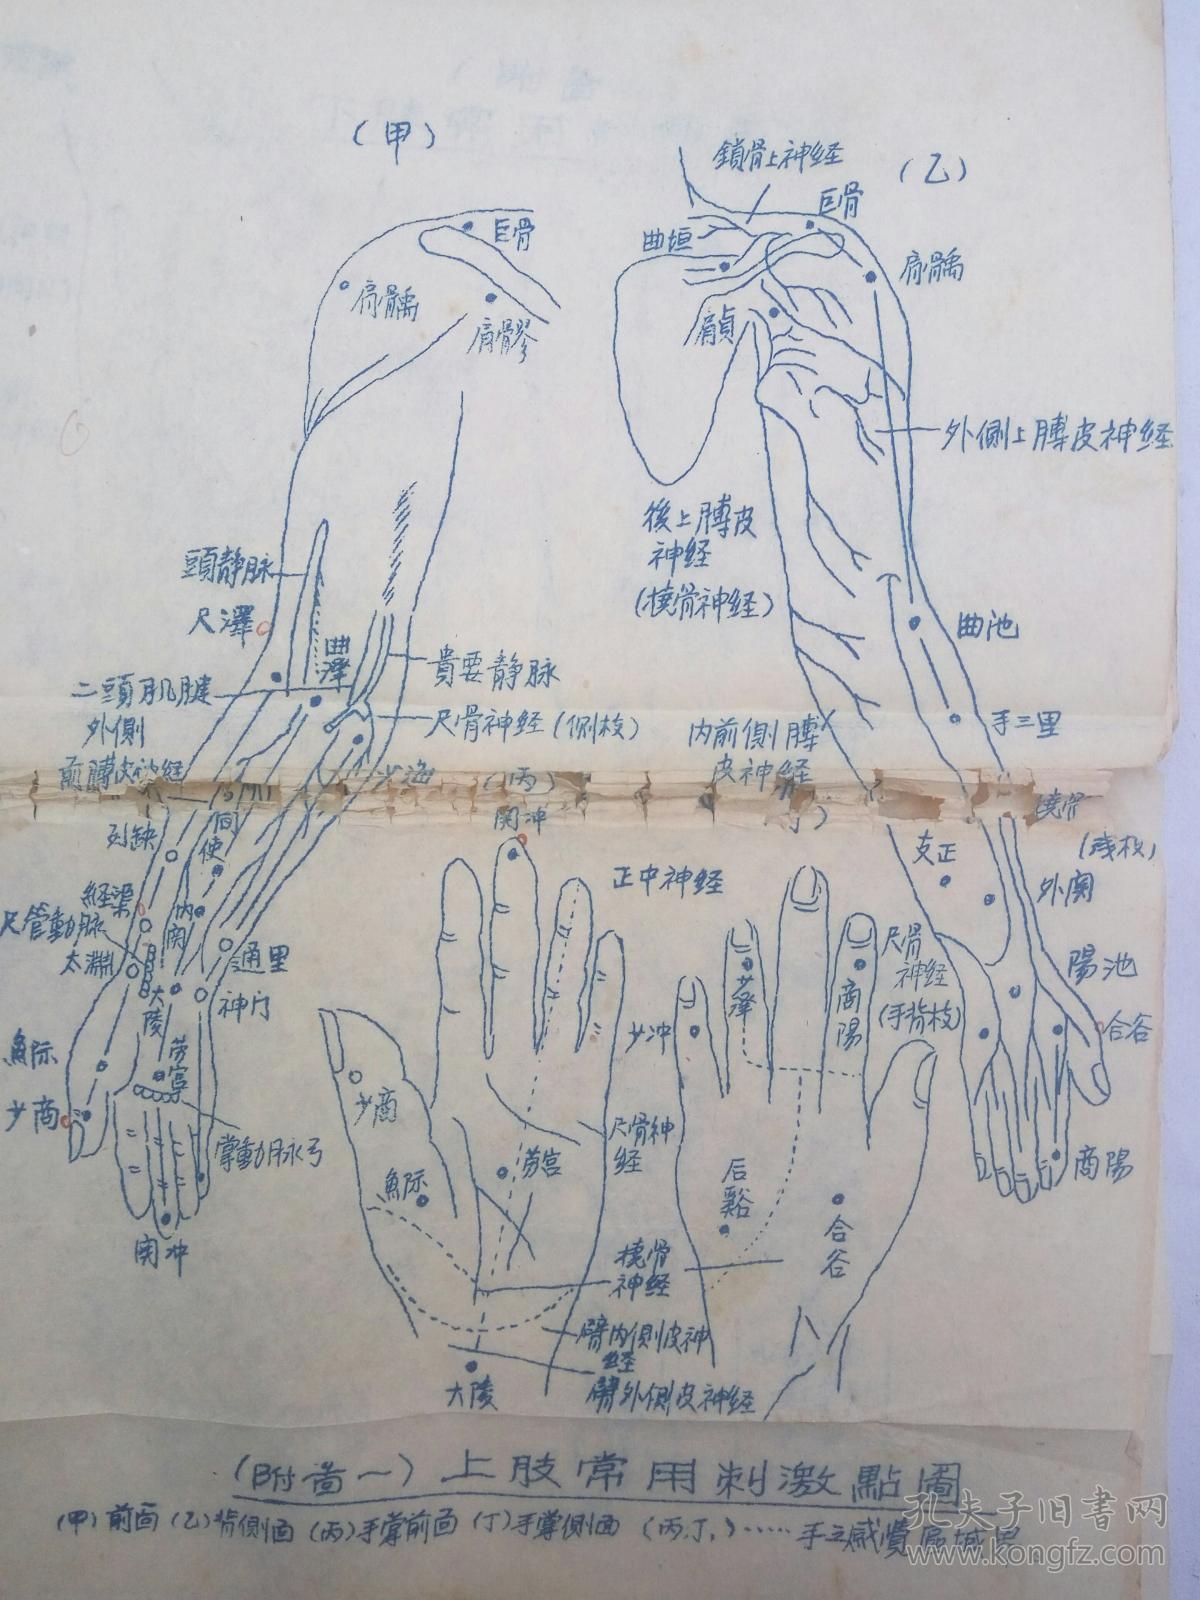 (甲)
巨骨
肩髃
肩髎
頭静脉
尺澤
曲澤
二頭肌腱
外側
前膊皮神経
貴要静脉
尺骨神経(側枝)
少海
列缺
间使
経渠
尺管動脉
内関
太淵
大陵
通里
神门
魚际
劳宫
少商
掌動脉弓
関冲
(乙)
鎖骨上神経
巨骨
曲垣
肩髃
肩貞
外側上膊皮神経
後上膊皮
神経
(橈骨神経)
曲池
手三里
内前側膊
皮神経
橈骨
(浅枝)
支正
外関
陽池
合谷
商陽
(丙)
関冲
正中神経
少商
魚际
劳宫
尺骨神
経
橈骨
神経
臂内側皮神
経
臂外側皮神経
大陵
少澤
少冲
商陽
尺骨
神経
(手背枝)
后
谿
合
谷
(附啚一)上肢常用刺激點圖
(甲)前面(乙)背側面(丙)手掌前面(丁)手掌側面(丙,丁,)……手之感覚區域
孔夫子旧书网
www.kongfz.com